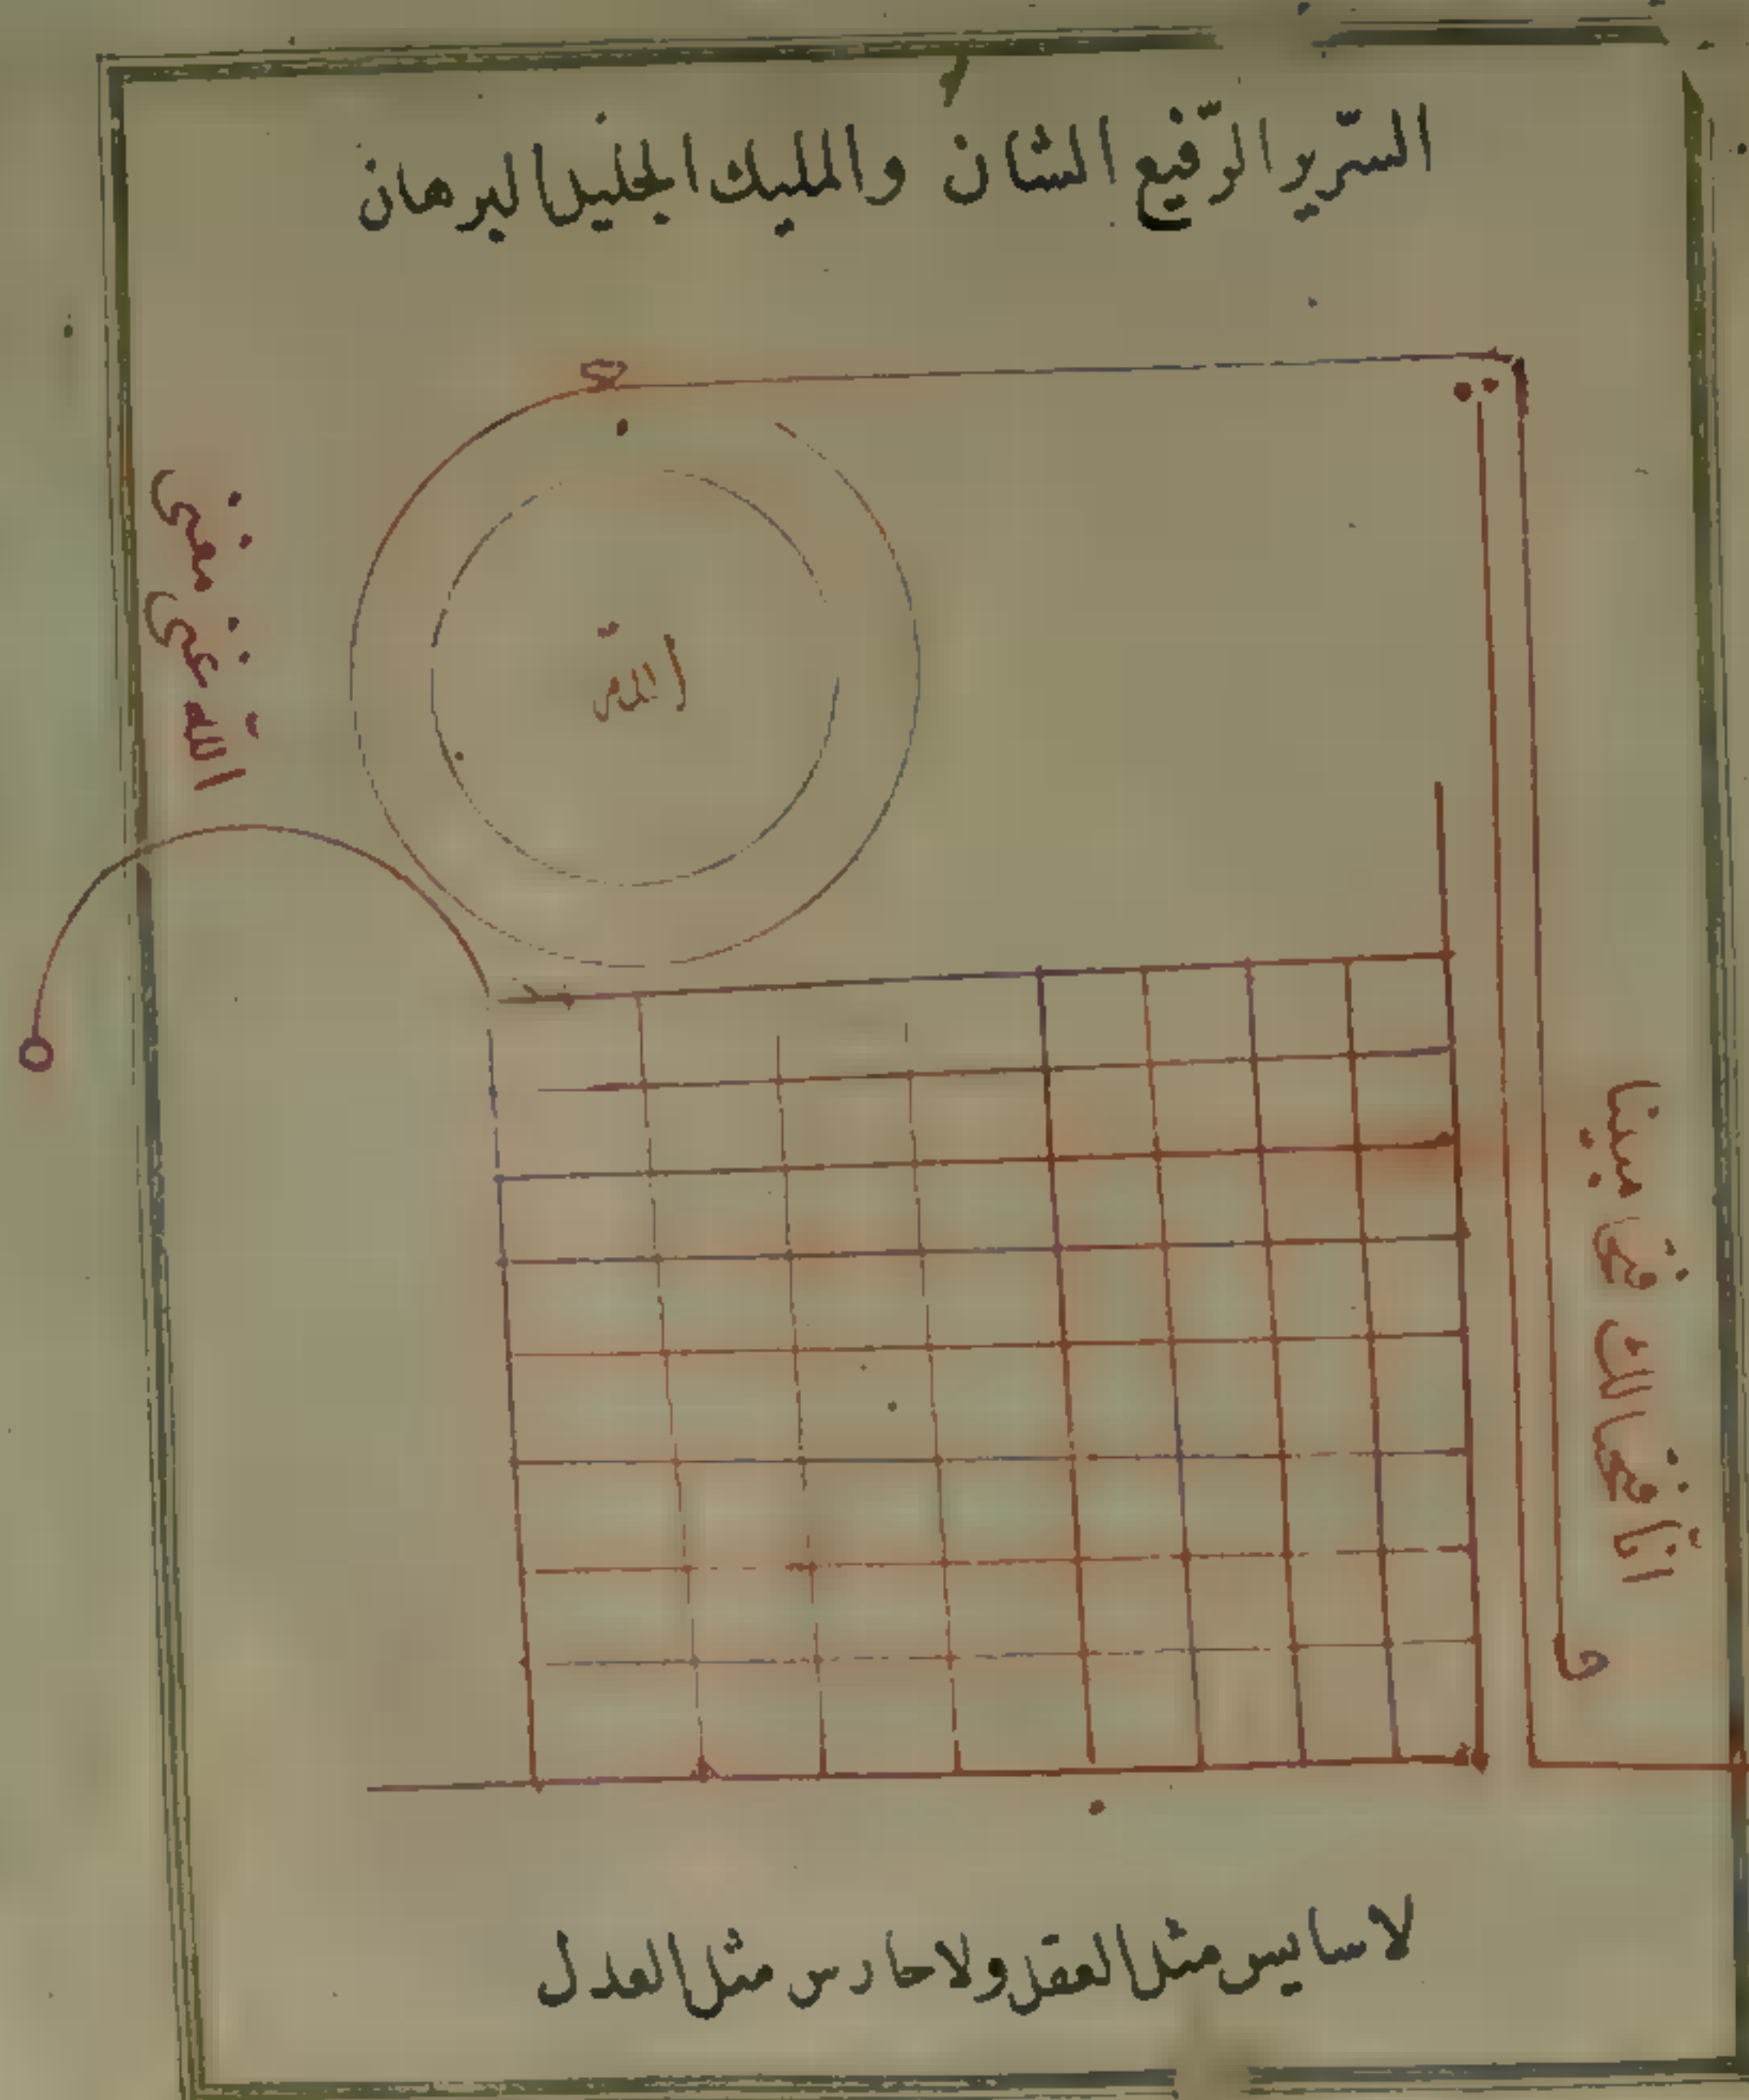 السّرير الرّفيع الشان والمليك الجليل البرهان
اللّه
اللّه غنى مغنى
انّا فتحنا لك فتحا مبينا
لا سايس مثل العقل ولا حارس مثل العدل